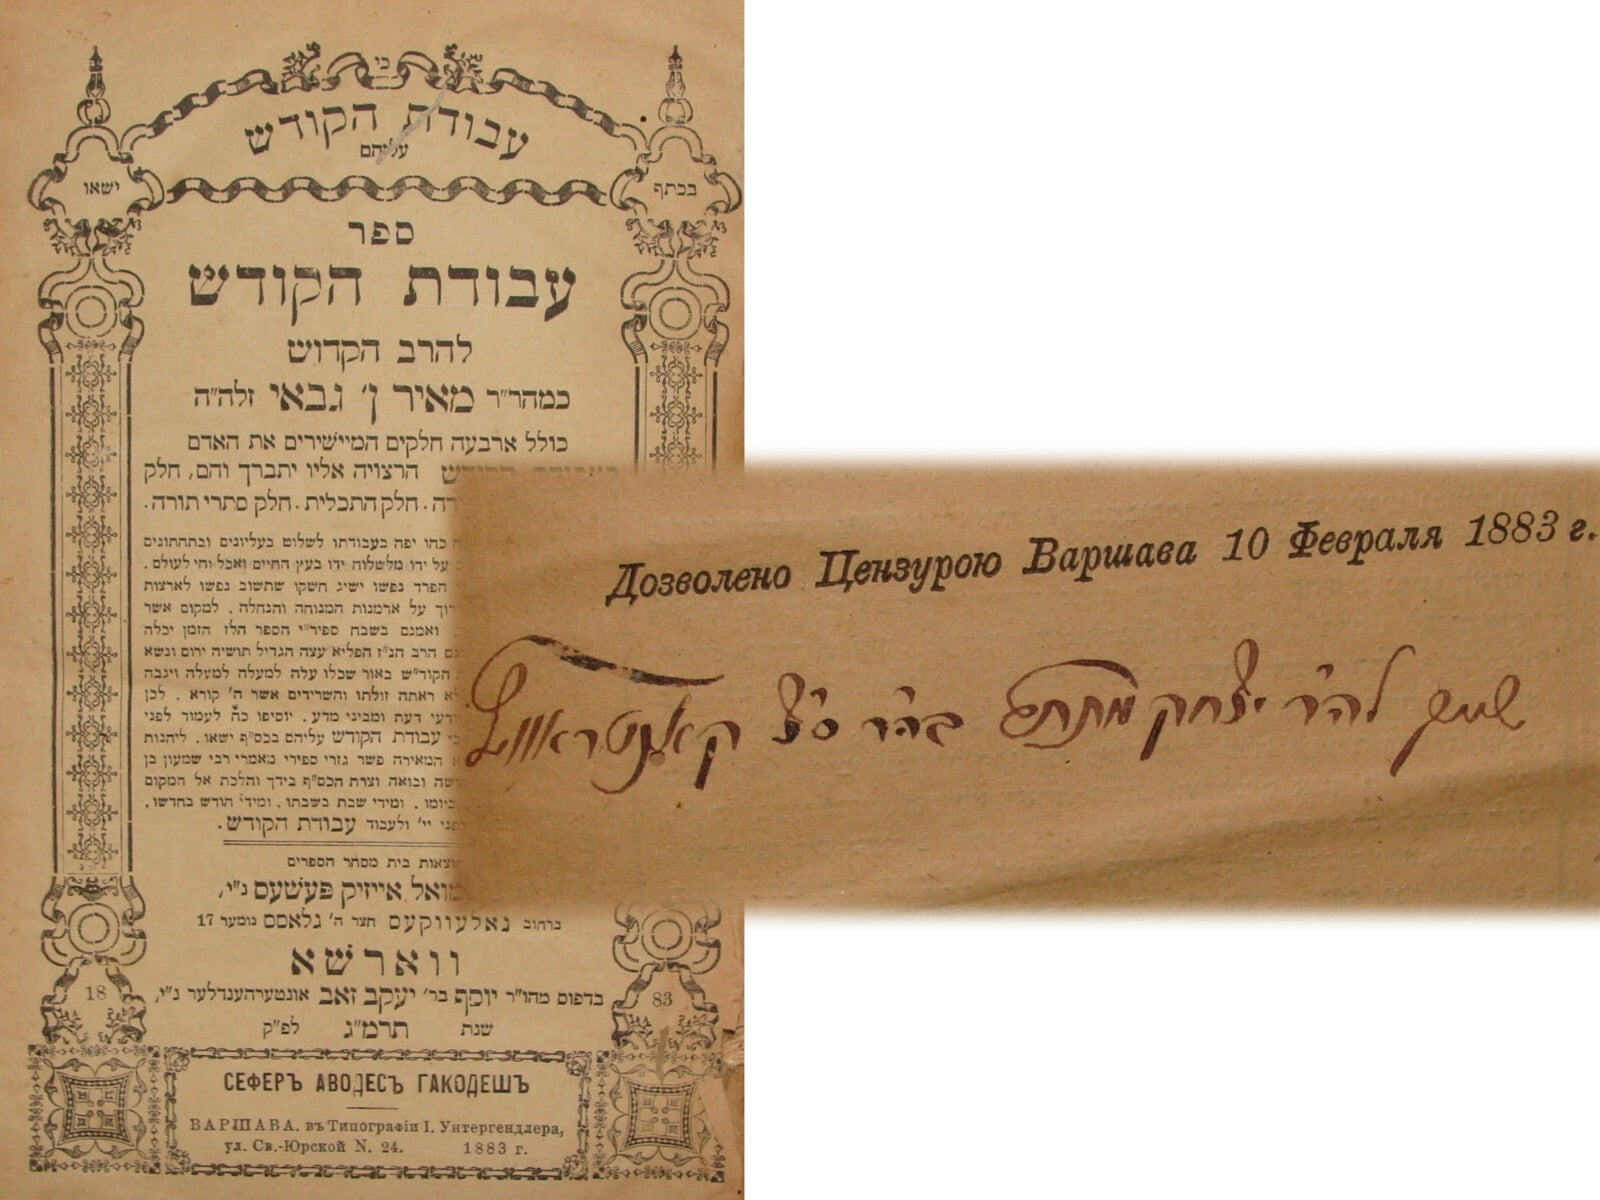 כי
עבודת הקודש
עליהם
בכתף
ישאו
ספר
עבודת הקודש
להרב הקדוש
כמהר״ר מאיר ן׳ גבאי זלה״ה
כולל ארבעה חלקים המיישירים את האדם
הרצויה אליו יתברך והם, חלק
חלק התכלית. חלק סתרי תורה.
כחו יפה בעבודתו לשלום בעליונים ובתחתונים
על ידו מלשלוח ידו בעץ החיים ואכל וחי לעולם.
הפרד נפשו ישיג חשקו שתשוב נפשו לארצות
על ארמנות המנוחה והנחלה. למקום אשר
ואמנם בשבת ספירי הספר הלז הזמן יכלה
הרב הנ״ז הפליא עצה הגדיל תושיה ירום ונשא
הקוד״ש באור שכלו עלה למעלה למעלה ויגבה
ראתה זולתו והשרידים אשר ה׳ קורא. לכן
דעת ומביני מדע. יוסיפו כח לעמוד לפני
עבודת הקודש עליהם בכס״ף ישאו. ליהנות
המאירה פשר גזרי ספירי מאמרי רבי שמעון בן
ובואה וצרת הכס״ף בידך והלכת אל המקום
ביומו. ומידי שבת בשבתו. ומידי חודש בחדשו.
יי׳ ולעבוד עבודת הקודש.
בית מסחר הספרים
אייזיק פעשעס נ״י,
ברחוב נאלעווקעס חצר ה׳ גלאסס נומער 17
ווארשא
בדפוס מהו״ר יוסף בר׳ יעקב זאב אונטערהענדלער נ״י,
שנת תרמ״ג לפ״ק
18
83
СЕФЕРЪ АВОДЕСЪ ГАКОДЕШЪ
ВАРШАВА. въ Типографіи І. Унтергендлера,
ул. Св.-Юрской N. 24. 1883 г.
Дозволено Цензурою Варшава 10 Февраля 1883 г.
שייך להר׳ר יצחק בהר׳ר